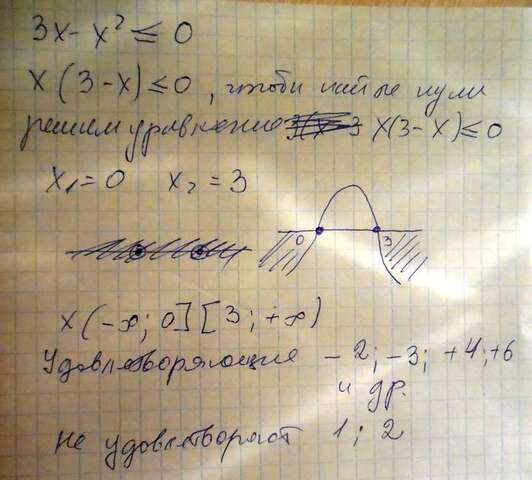 3x - x² ≤ 0
x(3-x) ≤ 0, чтоби найти нули
решаем уравнение x(3-x) ≤ 0
x₁=0 x₂=3
0 3
x(-∞; 0] [3; +∞)
Удовлетворяющие -2; -3; +4; +6
и др.
не удовлетворяют 1; 2